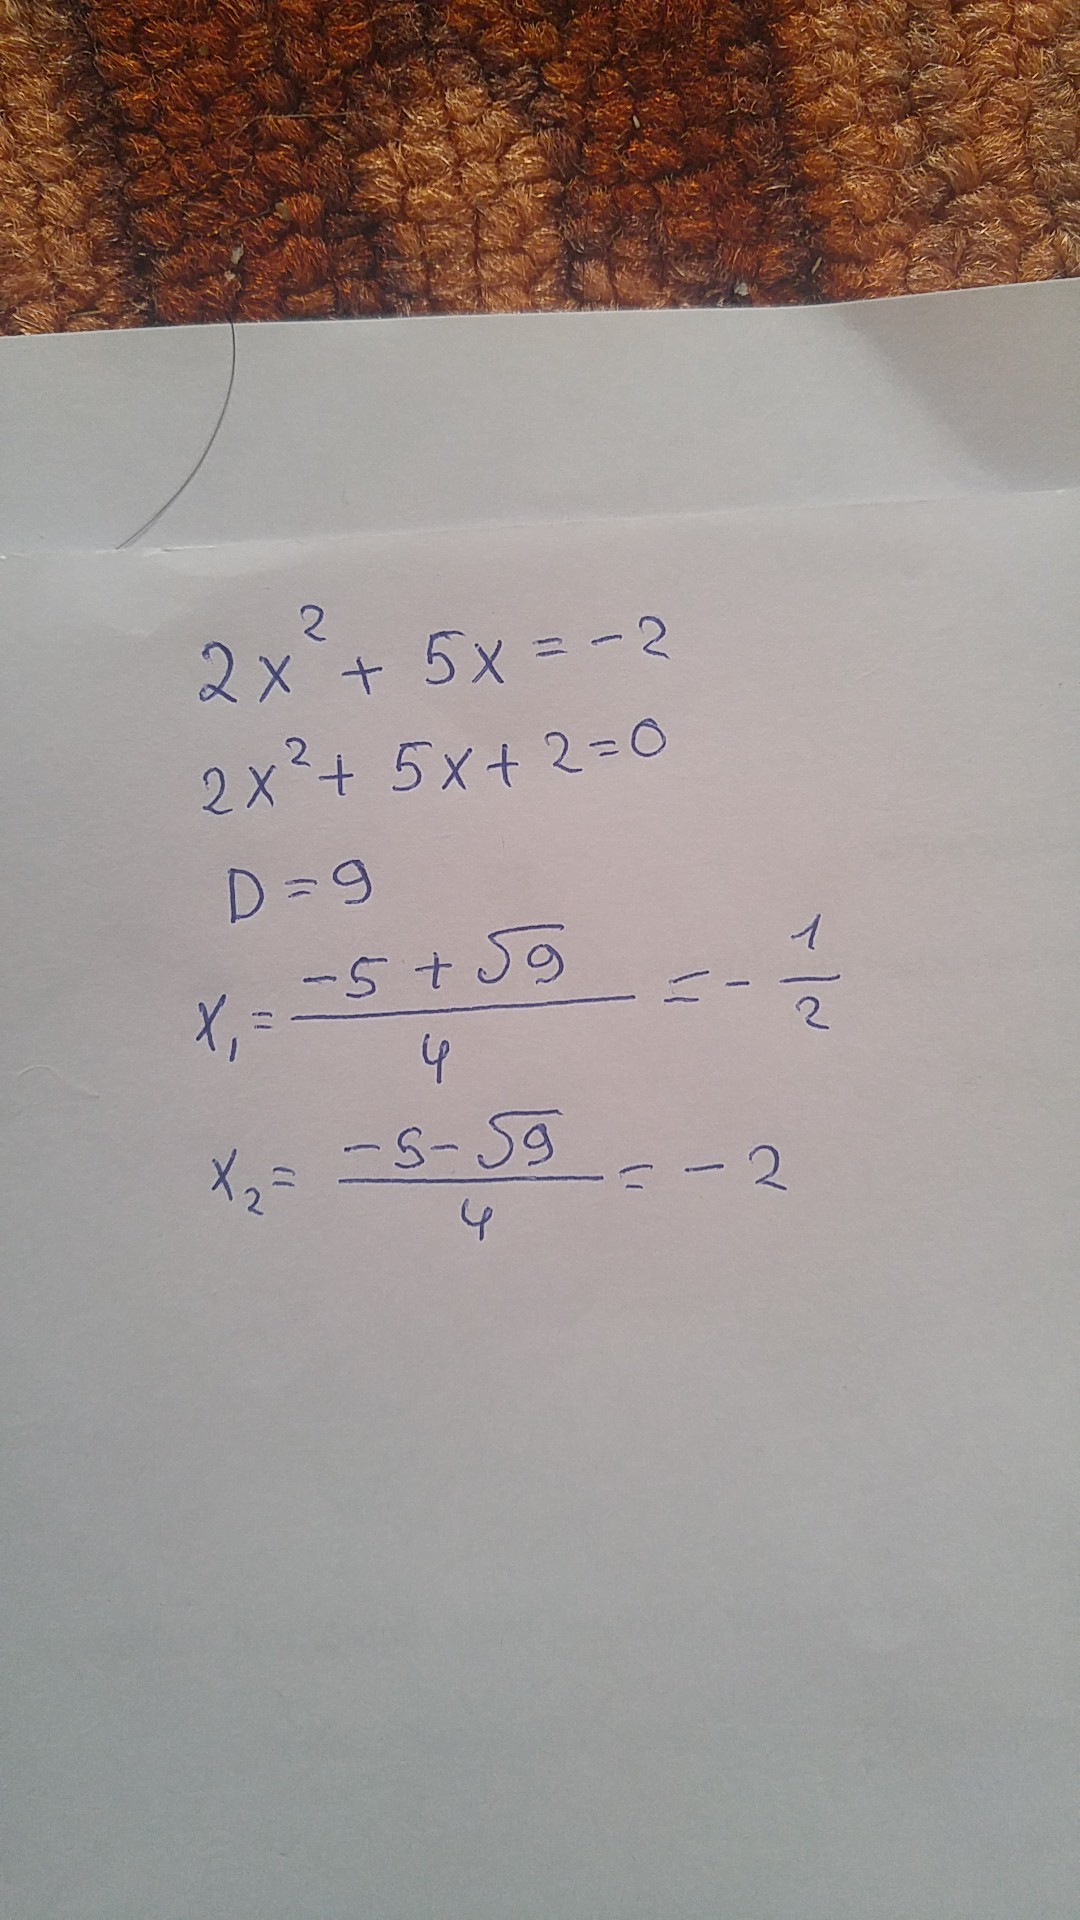 2x² + 5x = -2
2x² + 5x + 2 = 0
D = 9
x₁ = (-5 + √9)/4 = -1/2
x₂ = (-5 - √9)/4 = -2